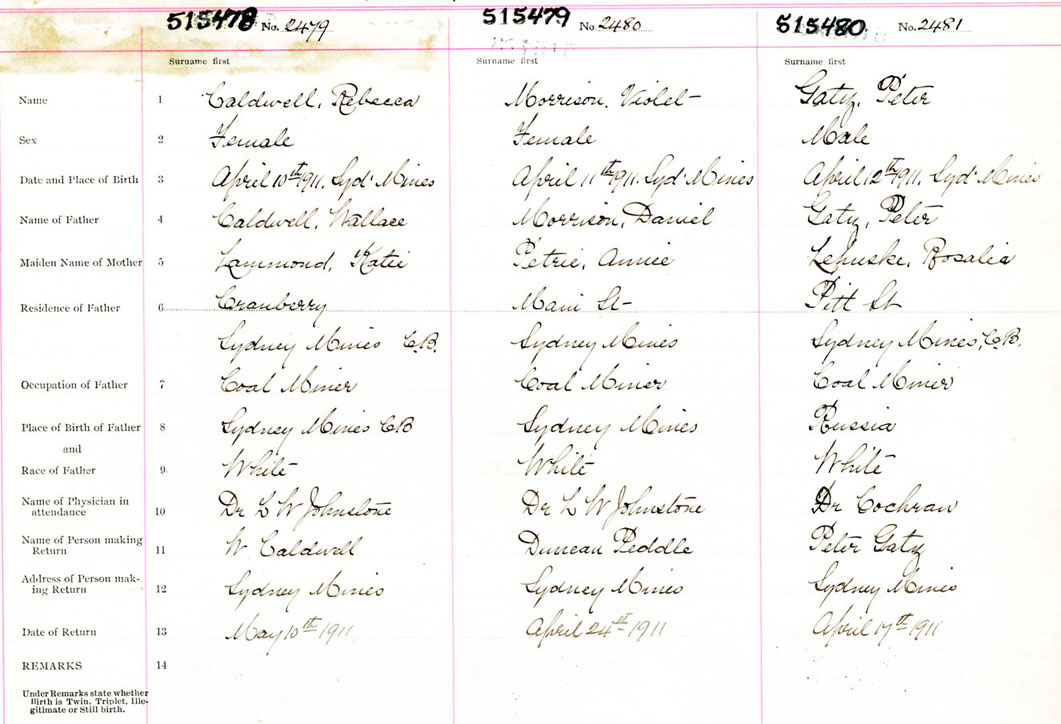 515478 No. 2479 515479 No 2480 515480 No. 2481
Surname first Surname first Surname first
Name 1 Caldwell, Rebecca Morrison, Violet Gaty, Peter
Sex 2 Female Female Male
Date and Place of Birth 3 April 10th 1911. Syd' Mines April 11th 1911. Syd' Mines April 12th 1911. Syd Mines
Name of Father 4 Caldwell, Wallace Morrison, Daniel Gaty, Peter
Maiden Name of Mother 5 Lammond, Katie Petrie, Annie Lepuske, Rosalia
Residence of Father 6 Cranberry Main St Pitt St
Sydney Mines C.B. Sydney Mines Sydney Mines, C.B.
Occupation of Father 7 Coal Miner Coal Miner Coal Miner
Place of Birth of Father 8 Sydney Mines CB Sydney Mines Russia
and
Race of Father 9 White White White
Name of Physician in
attendance 10 Dr L W Johnstone Dr L W Johnstone Dr Cochran
Name of Person making
Return 11 W Caldwell Duncan Peddle Peter Gaty
Address of Person mak-
ing Return 12 Sydney Mines Sydney Mines Sydney Mines
Date of Return 13 May 10th 1911 April 24th 1911 April 17th 1911
REMARKS 14
Under Remarks state whether
Birth is Twin, Triplet, Ille-
gitimate or Still birth.